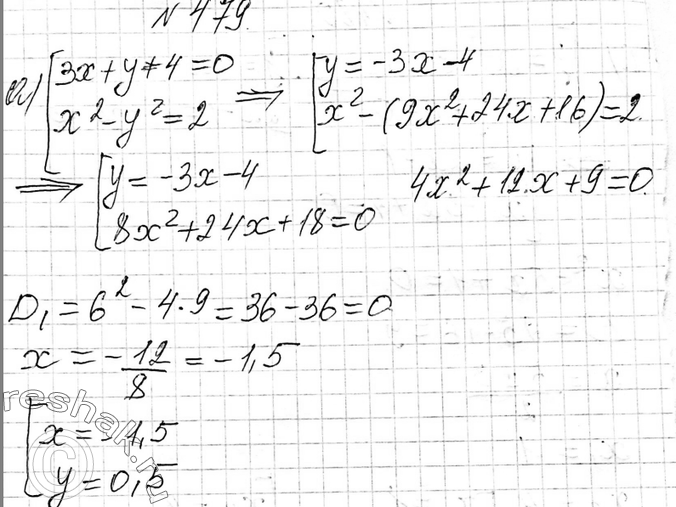 № 479.
а) [3x + y + 4 = 0
x² - y² = 2
⟹ [y = -3x - 4
x² - (9x² + 24x + 16) = 2
⟹ [y = -3x - 4
8x² + 24x + 18 = 0
4x² + 12x + 9 = 0
D₁ = 6² - 4·9 = 36 - 36 = 0
x = -12/8 = -1,5
[x = -1,5
y = 0,5
reshak.ru
©